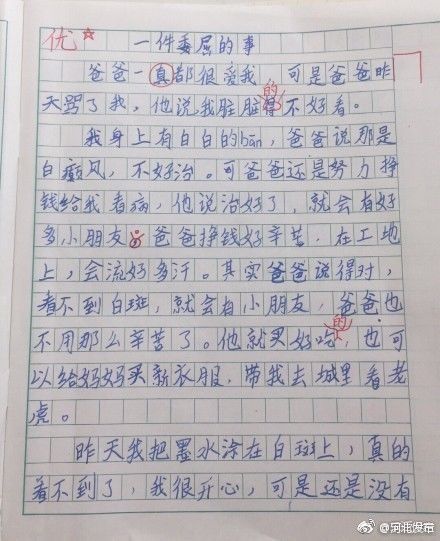 优
一件委屈的事
爸爸一真都很爱我 可是爸爸昨
天骂了我，他说我脏脏得不好看。
的
我身上有白白的bān，爸爸说那是
白癜风，不好治。可爸爸还是努力挣
钱给我看病，他说治好了，就会有好
多小朋友。爸爸挣钱好辛苦，在工地
上，会流好多汗。其实爸爸说得对，
看不到白斑，就会有小朋友，爸爸也
不用那么辛苦了。他就买好吃，也可
的
以给妈妈买新衣服，带我去城里看老
虎。
昨天我把墨水涂在白斑上，真的
看不到了，我很开心，可是还是没有
@河北发布